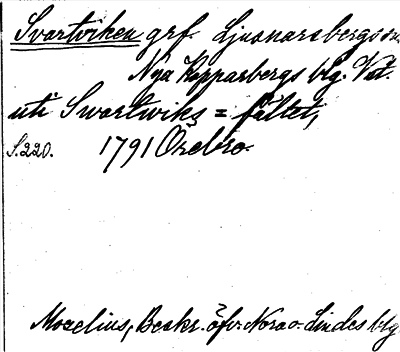 Svartviken grf Ljusnarsbergs sn.
Nya Kopparbergs blg. Vstm.
uti Swartwiks = fältet,
S. 220. 1791 Örebro
Mocelius, Beskr. öfv. Nora o. Lindes blg.